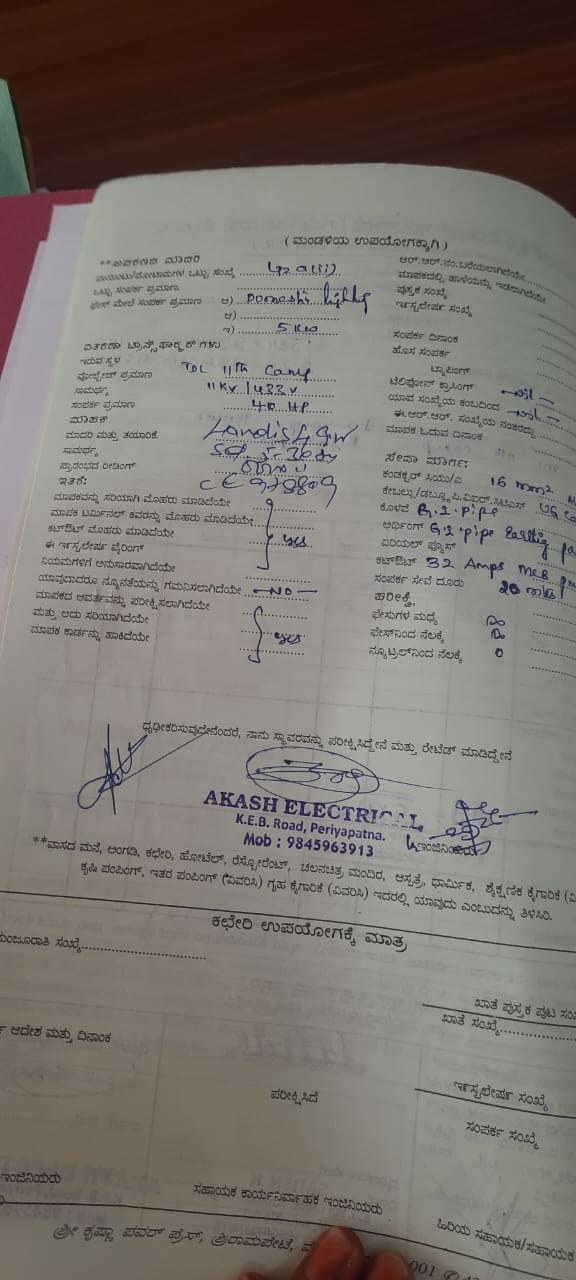 ( ಮಂಡಳಿಯ ಉಪಯೋಗಕ್ಕಾಗಿ )
**ಉಪಕರಣದ ಮಾದರಿ
ಪಾಯಿಂಟು/ಮೋಟಾರುಗಳ ಒಟ್ಟು ಸಂಖ್ಯೆ
ಒಟ್ಟು ಸಂಪರ್ಕ ಪ್ರಮಾಣ
ಫೇಸ್ ಮೇಲೆ ಸಂಪರ್ಕ ಪ್ರಮಾಣ ಅ) Domestic lighting
ಆ)
ಇ) 5 KW
ವಿತರಣಾ ಟ್ರಾನ್ಸ್‌ಫಾರ್ಮರ್ ಗಳು
ಇರುವ ಸ್ಥಳ TDL 11th Camp
ವೋಲ್ಟೇಜ್ ಪ್ರಮಾಣ 11 KV / 433 V
ಸಾಮರ್ಥ್ಯ
ಸಂಪರ್ಕ ಪ್ರಮಾಣ 40 HP
ಮಾಹಕ
ಮಾದರಿ ಮತ್ತು ತಯಾರಿಕೆ Landis & Gyr
ಸಾಮರ್ಥ್ಯ
ಪ್ರಾರಂಭದ ರೀಡಿಂಗ್
ಇತರೆ:
ಮಾಪಕವನ್ನು ಸರಿಯಾಗಿ ಮೊಹರು ಮಾಡಿದೆಯೇ
ಮಾಪಕ ಟರ್ಮಿನಲ್ ಕವರನ್ನು ಮೊಹರು ಮಾಡಿದೆಯೇ
ಕಟ್‌ಔಟ್ ಮೊಹರು ಮಾಡಿದೆಯೇ yes
ಈ ಇನ್ಸ್ಟಲೇಷನ್ ವೈರಿಂಗ್
ನಿಯಮಗಳಿಗೆ ಅನುಸಾರವಾಗಿದೆಯೇ
ಯಾವುದಾದರೂ ನ್ಯೂನತೆಯನ್ನು ಗಮನಿಸಲಾಗಿದೆಯೇ — NO —
ಮಾಪಕದ ಆವರ್ತವನ್ನು ಪರೀಕ್ಷಿಸಲಾಗಿದೆಯೇ
ಮತ್ತು ಅದು ಸರಿಯಾಗಿದೆಯೇ yes
ಮಾಪಕ ಕಾರ್ಡನ್ನು ಹಾಕಿದೆಯೇ
ಆರ್.ಆರ್.ನಂ.ಬರೆಯಲಾಗಿದೆಯೇ
ಮಾಪಕದಲ್ಲಿ ಹಾಳೆಯನ್ನು ಇಡಲಾಗಿದೆಯೇ
ಪುಸ್ತಕ ಸಂಖ್ಯೆ
ಇನ್ಸ್ಟಲೇಷನ್ ಸಂಖ್ಯೆ
ಸಂಪರ್ಕ ದಿನಾಂಕ
ಹೊಸ ಸಂಪರ್ಕ
ಟ್ಯಾಪಿಂಗ್
ಟೆಲಿಫೋನ್ ಕ್ರಾಸಿಂಗ್ — Nil —
ಯಾವ ಸಂಖ್ಯೆಯ ಕಂಬದಿಂದ — Nil —
ಈ.ಆರ್.ಆರ್. ಸಂಖ್ಯೆಯ ನಂತರದ್ದು
ಮಾಪಕ ಓದುವ ದಿನಾಂಕ
ಸೇವಾ ಮಾರ್ಗ:
ಕಂಡಕ್ಟರ್ ಸಿಯು/ಎ 16 mm2
ಕೇಬಲ್ಲು/ಡಬ್ಲ್ಯೂ.ಪಿ.ವಿಐಆರ್.ಸಿಟಿಎಸ್ UG
ಕೊಳವೆ G.I. pipe
ಅರ್ಥಿಂಗ್ G.I. pipe Earthing
ಏರಿಯಲ್ ಫ್ಯೂಸ್
ಕಟ್‌ಔಟ್ 32 Amps
ಸಂಪರ್ಕ ಸೇವೆ ದೂರು 20
ಪರೀಕ್ಷೆ
ಫೇಸುಗಳ ಮಧ್ಯೆ
ಫೇಸ್‌ನಿಂದ ನೆಲಕ್ಕೆ
ನ್ಯೂಟ್ರಲ್‌ನಿಂದ ನೆಲಕ್ಕೆ 0
ಧೃಢೀಕರಿಸುವುದೇನೆಂದರೆ, ನಾನು ಸ್ಥಾವರವನ್ನು ಪರೀಕ್ಷಿಸಿದ್ದೇನೆ ಮತ್ತು ರೇಟೆಡ್ ಮಾಡಿದ್ದೇನೆ
AKASH ELECTRICAL
K.E.B. Road, Periyapatna.
Mob : 9845963913
ಇಂಜಿನಿಯರು
**ವಾಸದ ಮನೆ, ಅಂಗಡಿ, ಕಛೇರಿ, ಹೋಟೆಲ್, ರೆಸ್ಟೋರೆಂಟ್, ಚಲನಚಿತ್ರ ಮಂದಿರ, ಆಸ್ಪತ್ರೆ, ಧಾರ್ಮಿಕ, ಶೈಕ್ಷಣಿಕ ಕೈಗಾರಿಕೆ
ಕೃಷಿ ಪಂಪಿಂಗ್, ಇತರ ಪಂಪಿಂಗ್ (ವಿವರಿಸಿ) ಗೃಹ ಕೈಗಾರಿಕೆ (ವಿವರಿಸಿ) ಇದರಲ್ಲಿ ಯಾವುದು ಎಂಬುದನ್ನು ತಿಳಿಸಿರಿ.
ಕಛೇರಿ ಉಪಯೋಗಕ್ಕೆ ಮಾತ್ರ
ಮಂಜೂರಾತಿ ಸಂಖ್ಯೆ
ಖಾತೆ ಪುಸ್ತಕ ಪುಟ
ಖಾತೆ ಸಂಖ್ಯೆ
ಆದೇಶ ಮತ್ತು ದಿನಾಂಕ
ಪರೀಕ್ಷಿಸಿದೆ
ಇನ್ಸ್ಟಲೇಷನ್ ಸಂಖ್ಯೆ
ಸಂಪರ್ಕ ಸಂಖ್ಯೆ
ಇಂಜಿನಿಯರು
ಸಹಾಯಕ ಕಾರ್ಯನಿರ್ವಾಹಕ ಇಂಜಿನಿಯರು
ಹಿರಿಯ ಸಹಾಯಕ/ಸಹಾಯಕ
ಶ್ರೀ ಕೃಷ್ಣಾ ಪವರ್ ಪ್ರೆಸ್, ಶ್ರೀರಾಮಪೇಟೆ,
001